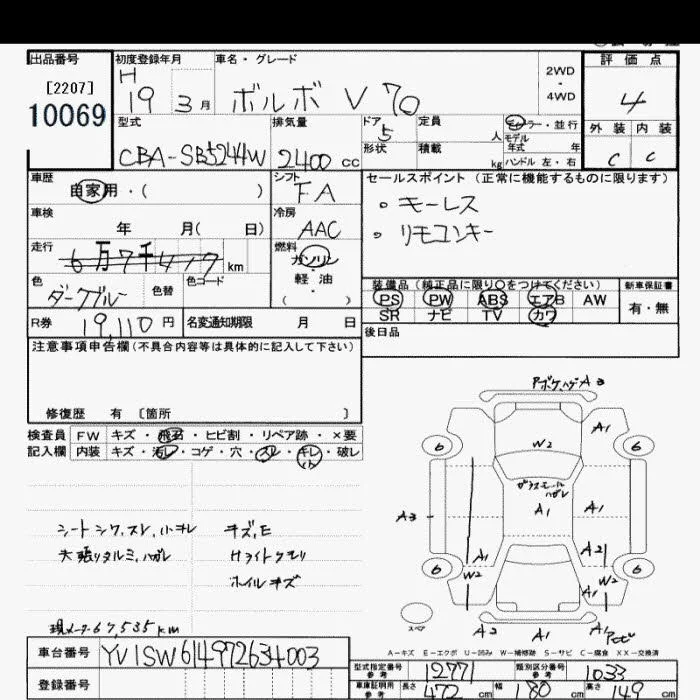 出品番号 初度登録年月 車名・グレード 評価点
[2207] H 2WD
10069 19 3月 ボルボ V70 4WD 4
型式 排気量 ドア 定員 ディーラー・並行 外装 内装
CBA-SB5244W 2400cc 5 人 モデル年式 年 C C
形状 積載 kg ハンドル 左・右
車歴 シフト セールスポイント(正常に機能するものに限ります)
自家用・( ) FA 。キーレス
車検 冷房 。リモコンキー
年 月( 日) AAC
走行 燃料
6万7千417km ガソリン
軽油
・( )
色 色替 色コード 装備品(純正品に限り○をつけてください) 新車保証書
ダークブルー PS PW ABS エアB AW 有・無
R券 19,110円 名変通知期限 月 日 SR ナビ TV カワ
注意事項申告欄(不具合内容等は具体的に記入して下さい) 後日品
修復歴 有 〔箇所 〕
検査員 FW キズ・飛石・ヒビ割・リペア跡・×要
記入欄 内装 キズ・汚レ・コゲ・穴・スレ・キレ・破レ
小
FボケハゲA3
A1
6 6
W2
ガラスモール
ハガレ
A3 A1 A1
A1 A2
6 W2 W2 6
A1
シートシワ,スレ,小キレ キズ,E
天張リタルミ,ハガレ Hライトクモリ
ホイルキズ
スペア A3 A1 A1
現メーター67,535km
A-キズ E-エクボ U-凹み W-補修跡 S-サビ C-腐食 XX-交換済
車台番号 YV1SW614972634003
登録番号
型式指定番号 参考 12771 類別区分番号 参考 1033
車庫証明用 参考 長さ 472cm 幅 180cm 高さ 149cm